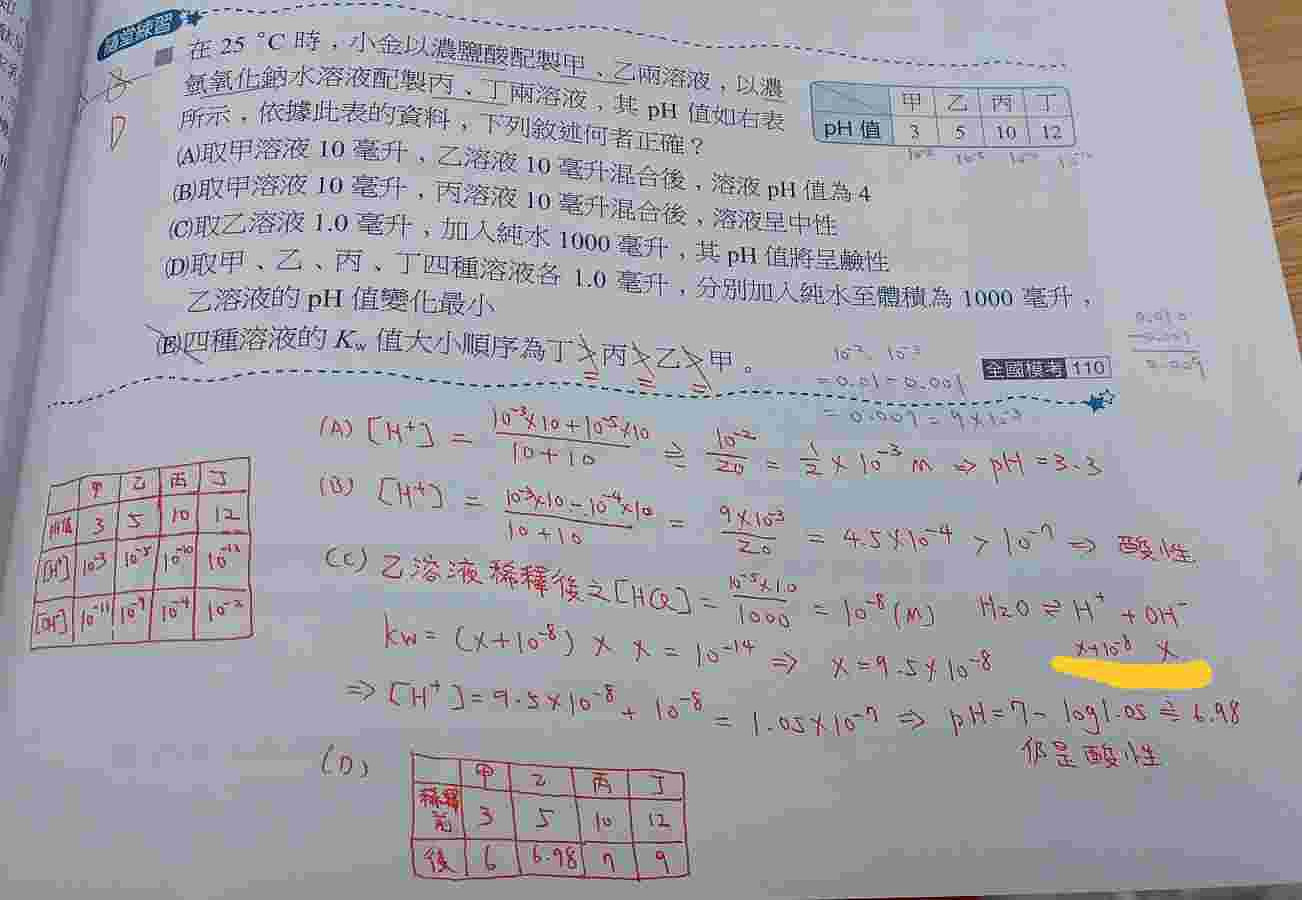 隨堂練習
在 25 °C 時，小金以濃鹽酸配製甲、乙兩溶液，以濃
氫氧化鈉水溶液配製丙、丁兩溶液，其 pH 值如右表
所示，依據此表的資料，下列敘述何者正確？
甲 乙 丙 丁
pH 值 3 5 10 12
D
(A)取甲溶液 10 毫升，乙溶液 10 毫升混合後，溶液 pH 值為 4
(B)取甲溶液 10 毫升，丙溶液 10 毫升混合後，溶液呈中性
(C)取乙溶液 1.0 毫升，加入純水 1000 毫升，其 pH 值將呈鹼性
(D)取甲、乙、丙、丁四種溶液各 1.0 毫升，分別加入純水至體積為 1000 毫升，
乙溶液的 pH 值變化最小
(E)四種溶液的 Kw 值大小順序為丁＞丙＞乙＞甲。
全國模考 110
10⁻² - 10⁻³
= 0.01 - 0.001
= 0.009 = 9×10⁻³
0.010
- 0.001
0.009
(A) [H⁺] = (10⁻³×10 + 10⁻⁵×10)/(10+10) ≒ 10⁻²/20 = 1/2 × 10⁻³ M ⇒ pH = 3.3
(B) [H⁺] = (10⁻³×10 - 10⁻⁴×10)/(10+10) = 9×10⁻³/20 = 4.5×10⁻⁴ > 10⁻⁷ ⇒ 酸性
甲 乙 丙 丁
pH值 3 5 10 12
[H⁺] 10⁻³ 10⁻⁵ 10⁻¹⁰ 10⁻¹²
[OH⁻] 10⁻¹¹ 10⁻⁹ 10⁻⁴ 10⁻²
(C) 乙溶液稀釋後之[HCl] = 10⁻⁵×1.0/1000 = 10⁻⁸ (M) H₂O ⇌ H⁺ + OH⁻
x+10⁻⁸ x
kw = (x+10⁻⁸) × x = 10⁻¹⁴ ⇒ x = 9.5×10⁻⁸
⇒ [H⁺] = 9.5×10⁻⁸ + 10⁻⁸ = 1.05×10⁻⁷ ⇒ pH = 7 - log1.05 ≒ 6.98
仍是酸性
(D)
甲 乙 丙 丁
稀釋前 3 5 10 12
後 6 6.98 7 9